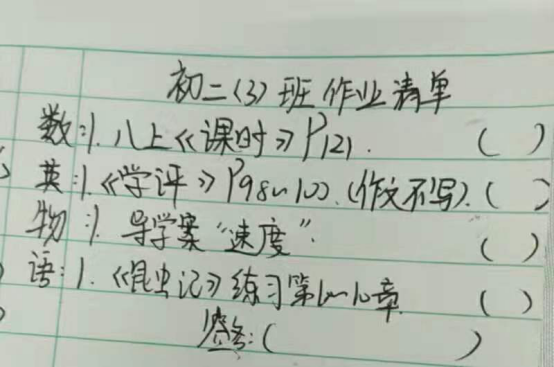 初二(3)班作业清单
数:1.八上《课时》P121. ( )
英:1.《学评》P98~100.(作文不写).( )
物:1.导学案“速度”. ( )
语:1.《昆虫记》练习第1~10章. ( )
签名:( )